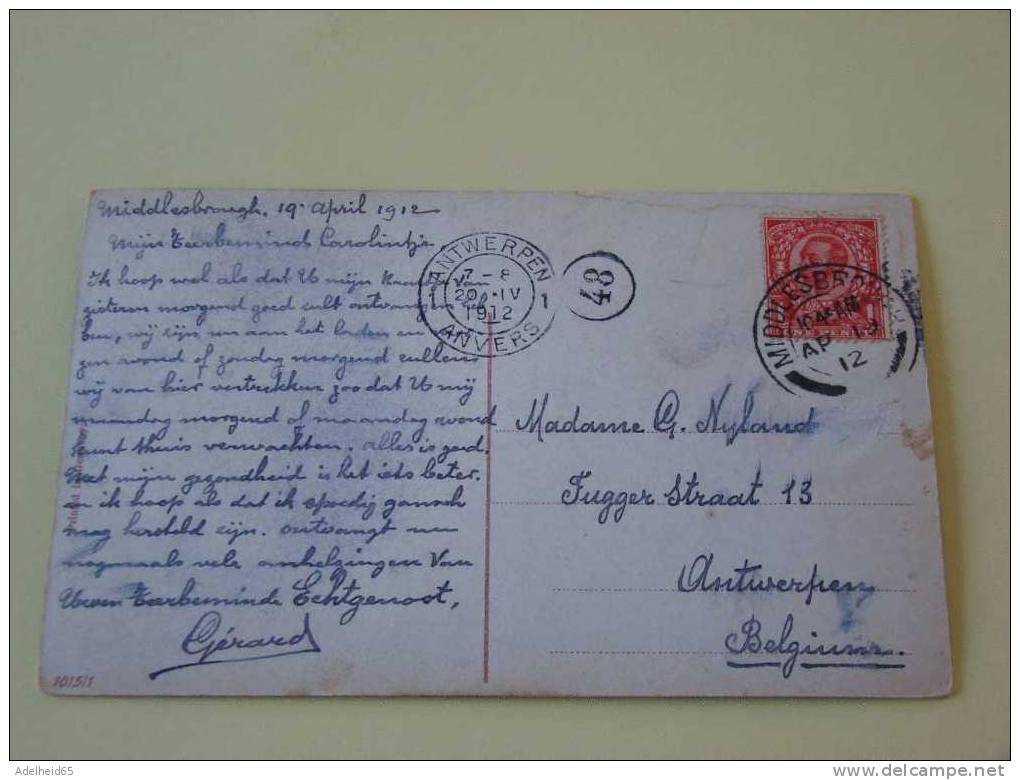 Middlesbrough. 19 April 1912
Mijn Teerbeminds Carolintje
Ik hoop wel als dat U mijn kaartje van
gisteren morgend goed cult ontvangen
ben, wij zijn nu aan het laden en
zon avond of zondag morgend cullens
wij van hier vertrekken zoo dat U mij
maandag morgend of maandag avond
kunt thuis verwachten. alles is goed.
Met mijn gezondheid is het iets beter.
en ik hoop als dat ik spoedig gansch
mag hersteld zijn. ontvangt nu
nogmaals vele omhelzingen Van
Uwen Teerbeminde Echtgenoot,
Gérard
1015/1
ANTWERPEN
7-8
1 20 IV 1
1912
ANVERS
48
MIDDLESBRO
10.45 AM
AP 19
12
Madame G. Nyland
Fugger Straat 13
Antwerpen
Belgium.
Adelheid65
delcampe.net